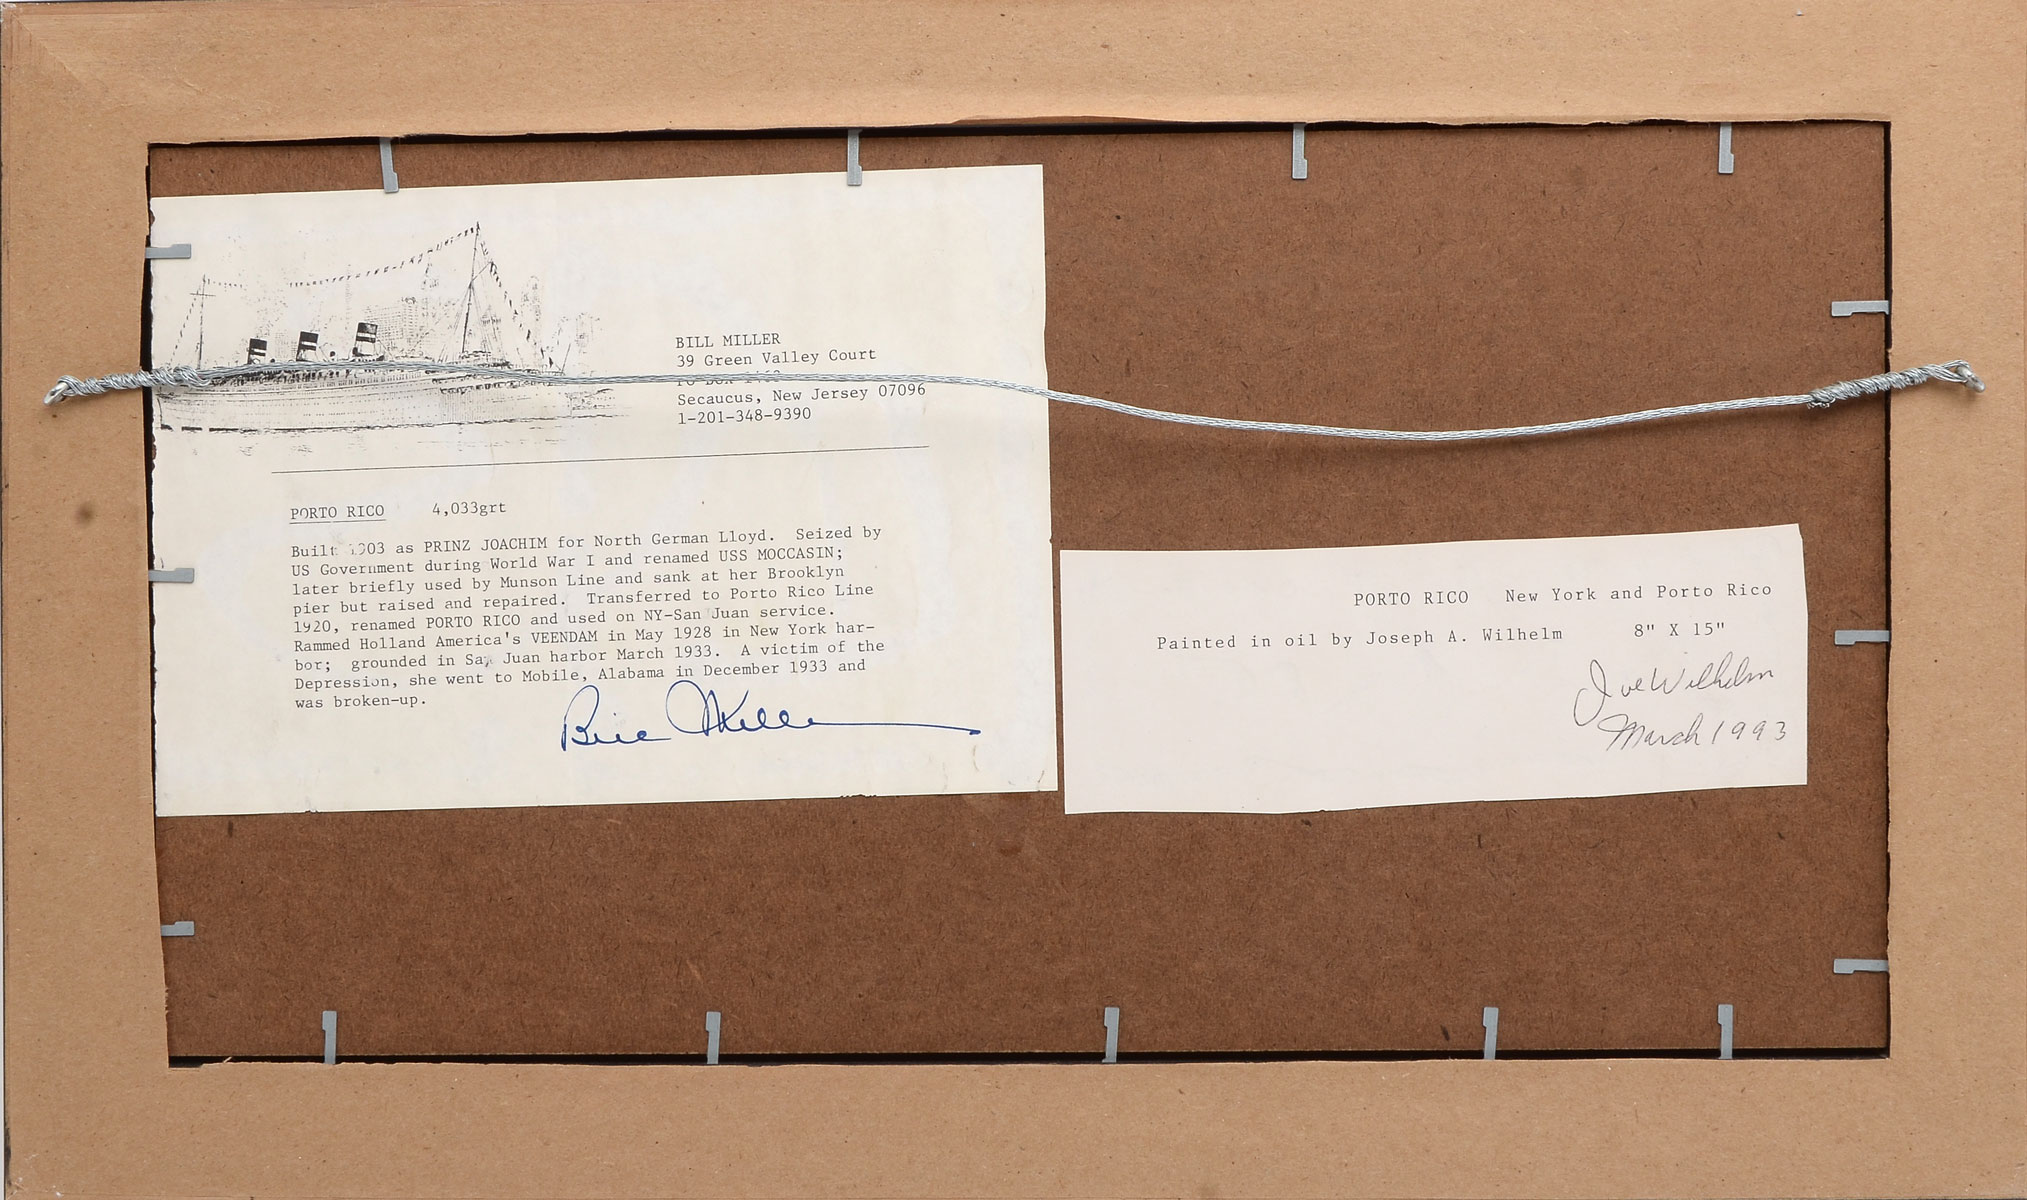 BILL MILLER
39 Green Valley Court
PO Box
Secaucus, New Jersey 07096
1-201-348-9390
PORTO RICO 4,033grt
Built 1903 as PRINZ JOACHIM for North German Lloyd. Seized by
US Government during World War I and renamed USS MOCCASIN;
later briefly used by Munson Line and sank at her Brooklyn
pier but raised and repaired. Transferred to Porto Rico Line
1920, renamed PORTO RICO and used on NY-San Juan service.
Rammed Holland America's VEENDAM in May 1928 in New York har-
bor; grounded in San Juan harbor March 1933. A victim of the
Depression, she went to Mobile, Alabama in December 1933 and
was broken-up.
Bill Miller
PORTO RICO New York and Porto Rico
Painted in oil by Joseph A. Wilhelm 8" X 15"
Joe Wilhelm
March 1993